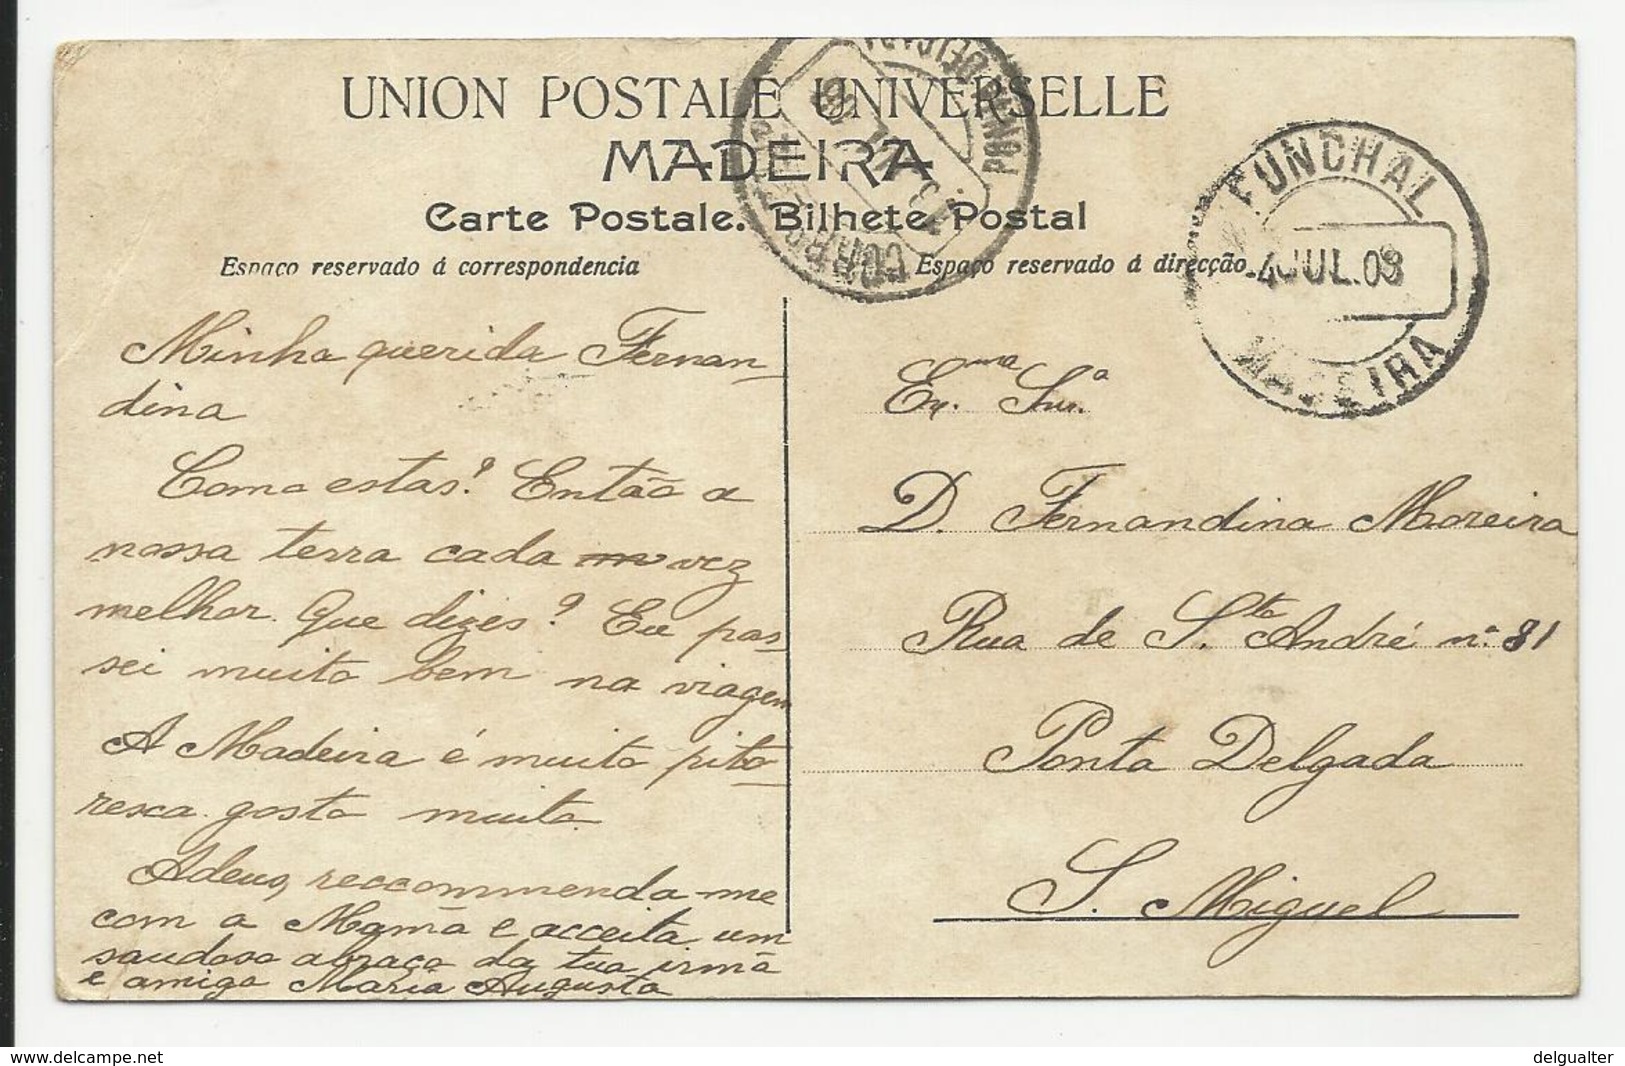 UNION POSTALE UNIVERSELLE
MADEIRA
Carte Postale. Bilhete Postal
Espaço reservado á correspondencia
Espaço reservado á direcção
FUNCHAL
-4 JUL. 08
MADEIRA
PONTA DELGADA
Minha querida Fernan-
dina
Como estas? Então a
nossa terra cada vez
melhor. Que dizes? Eu pas-
sei muito bem na viagem
A Madeira é muito pito-
resca. gosto muito.
Adeus, reccommenda-me
com a Mamã e acceita um
saudoso abraço da tua irmã
e amiga Maria Augusta
Exma Snra
D. Fernandina Moreira
Rua de Sto André nº 81
Ponta Delgada
S. Miguel
www.delcampe.net
delgualter